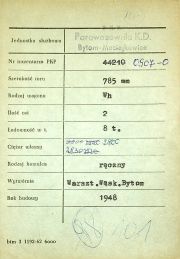 Jednostka służbowa
P.K.P.
Parowozownia K.D.
Bytom-Maciejkowice
Nr inwentarza PKP 44210 0907-0
Szerokość toru 785 mm
Rodzaj wagonu Wh
Ilość osi 2
Ładowność w t. 8 t.
Ciężar własny
Rodzaj hamulca ręczny
Warszt.Wąsk.Bytom
Rok budowy 1948